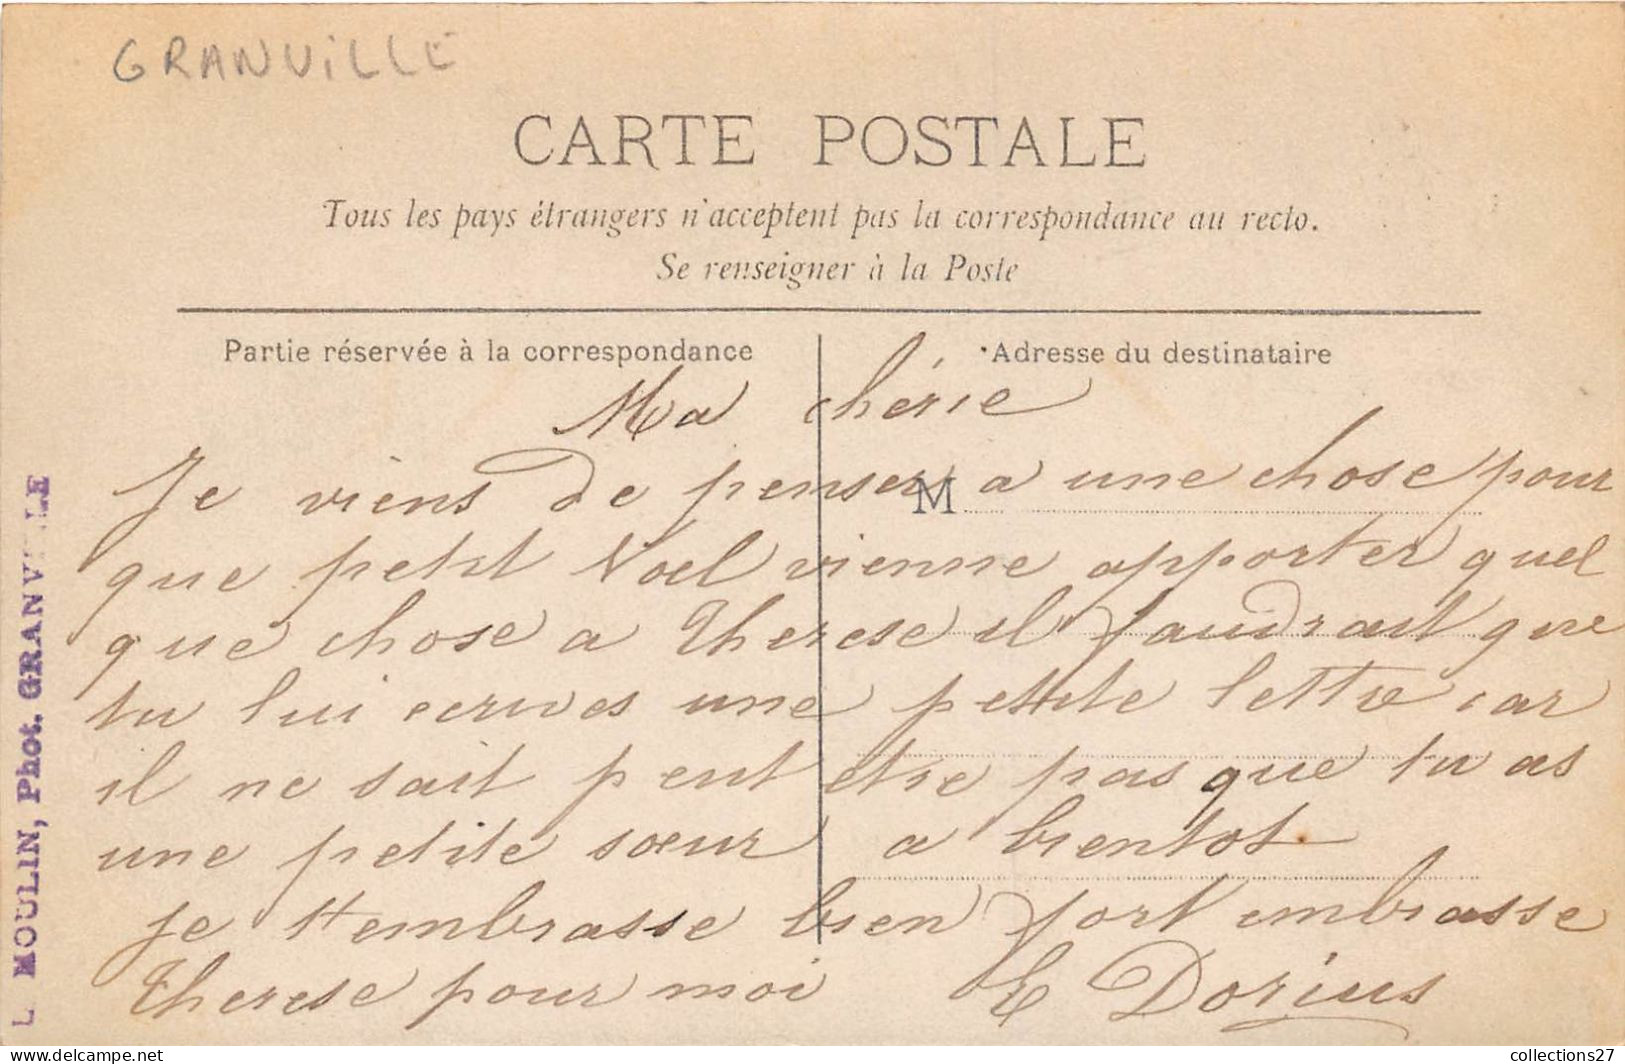 GRANVILLE
CARTE POSTALE
Tous les pays étrangers n'acceptent pas la correspondance au recto.
Se renseigner à la Poste
Partie réservée à la correspondance
Adresse du destinataire
Ma chérie
M
Je viens de penser a une chose pour
que petit Noel vienne apporter quel
que chose a Therese il faudrait que
tu lui ecrives une petite lettre car
il ne sait peut etre pas que tu as
une petite sœur a bientot
je t'embrasse bien fort embrasse
Therese pour moi E Dorius
L. MOULIN, Phot. GRANV LLE
collections27